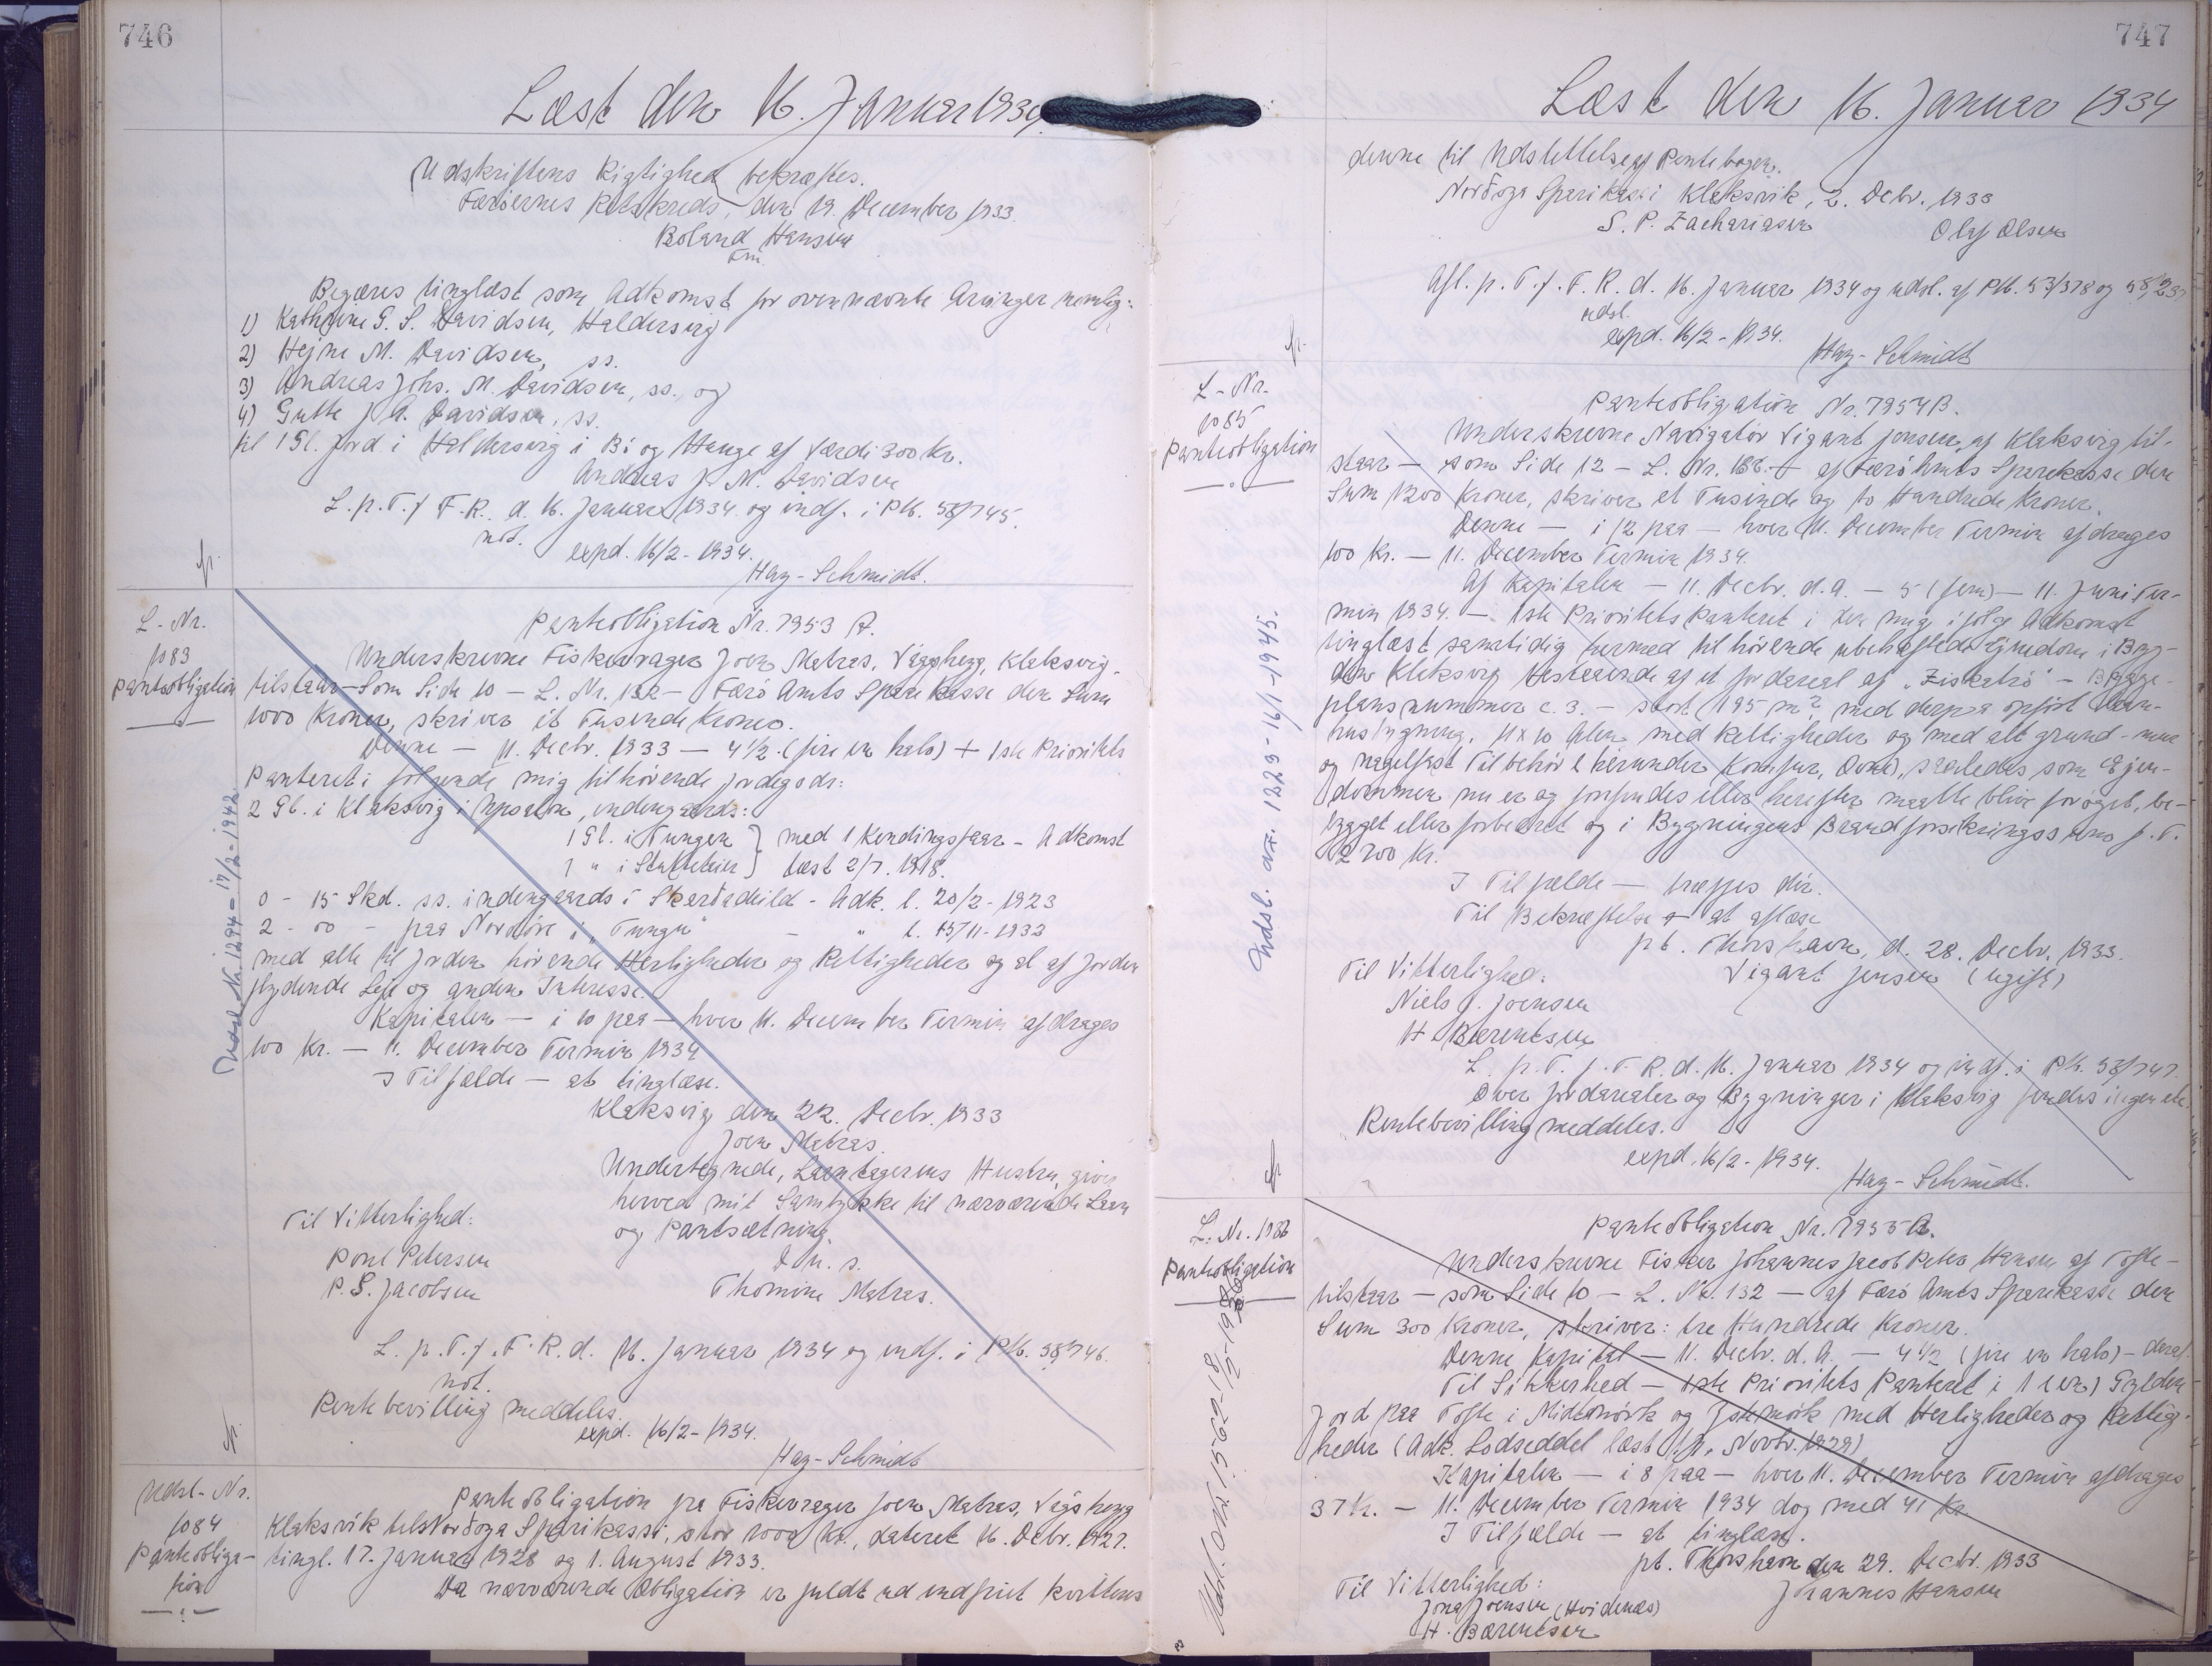 746
Læst den 16. Januar 1934.
Udskriftens Rigtighed bekræftes.
Færøernes Retskreds, den 19. December 1933.
Boland Hansen
Fm.
Begæres tinglæst som Adkomst for ovennævnte Arvinger nemlig:
1) Kathrine G. S. Davidsen, Haldersvig
2) Hejne M. Davidsen, ss.
3) Andreas Johs. M. Davidsen, ss., og
4) Gutte J. A. Davidsen, ss.
til 1 Gl. Jord i Haldersvig i Bø og Hauge af Værdi 300 Kr.
Andreas J. M. Davidsen
L. p. T. f. F. R. d. 16. Januar 1934 og indf. i Pb. 58/745.
not.
expd. 16/2-1934.
Hay-Schmidt.
L-Nr.
1083
Panteobligation
Panteobligation Nr. 7953 A.
Underskrevne Fiskevrager Joen Matras, Vágshegg, Klaksvig
tilstaar - Som Side 10 - L. Nr. 132 - Færø Amts Sparekasse den Sum
1000 Kroner, skriver et Tusinde Kroner.
Denne - 11. Decbr. 1933 - 4½ (fire en halv) + 1ste Prioritets
Panteret i følgende mig tilhørende Jordegods:
2 Gl. i Klaksvig i Uppsalen, indengaards:
1 Gl. i Tungen } med 1 Kendingsfaar - Adkomst
1 " i } læst 2/7. 1918.
0 - 15 Skd. ss. indengaards i Skarðadeild - Adk. l. 20/2-1923
2 - 00 - paa Nordøre i "Tunga" - " l. 15/11-1932
med alle til Jorden hørende Herligheder og Rettigheder og al af Jorden
flydende Leje og anden Interesse.
Kapitalen - i 10 paa - hver 11. December Termin afdrages
100 Kr. - 11. December Termin 1934
I Tilfælde - at tinglæse.
Klaksvig den 22. Decbr. 1933
Joen Matras.
Undertegnede, Laantagerens Hustru, giver
herved mit Samtykke til nærværende Laan
og Pantsætning.
D. u. s.
Thomine Matras.
Til Vitterlighed:
Poul Petersen
P. S. Jacobsen
L. p. T. f. F. R. d. 16. Januar 1934 og indf. i Pb. 58/746.
not.
Rentebevilling meddeles.
expd. 16/2-1934.
Hay-Schmidt
Udsl. Nr. 1294 - 17/2-1942
Udsl-Nr.
1084
Panteobliga-
tion
Panteobligation fra Fiskevrager Joen Matras, Vágshegg
Klaksvik til Norðoya Sparikassi, stor 1000 Kr., dateret 16. Debr. 1927.
tingl. 17. Januar 1928 og 1. August 1933.
Da nærværende Obligation er fuldt ud indfriet kvitteres
747
Læst den 16. Januar 1934
denne til Udslettelse af Pantebogen.
Norðoya Sparikassi Klaksvik, 2. Debr. 1933
S. P. Zachariasen Olaf Olsen
Afl. p. T. f. F. R. d. 16. Januar 1934 og udsl. af Pb. 53/378 og
udsl.
expd. 16/2-1934.
Hay-Schmidt
L-Nr.
1085
Panteobligation
Panteobligation Nr. 7954 B.
Underskrevne Navigatør Vigant Jensen af Klaksvig til-
staar - som Side 12 - L. Nr. - af Færø Amts Sparekasse den
Sum 1200 Kroner, skriver et Tusinde og to Hundrede Kroner.
Denne - i 12 paa - hver 11. December Termin afdrages
100 Kr. - 11. December Termin 1934.
Af Kapitalen - 11. Decbr. d. A. - 5 (fem) - 11. Juni Ter-
min 1934. - 1ste Prioritets Panteret i den mig ifølge Adkomst
tinglæst samtidig hermed tilhørende ubehæftede Ejendom i Byg-
den Klaksvig bestaaende af et Jordareal af - Bygge-
plansnummer c. 3. - stort 195 m² med derpaa opført Vaan-
husbygning, 11 x 10 Alen med Rettigheder og med alt grund- mur
og nagelfast Tilbehør (herunder Komfur, Ovne), saaledes som Ejen-
dommen nu er og forefindes eller herefter maatte blive forøget, be-
bygget eller forbedret og i Bygningens Brandforsikringssum p. T.
2700 Kr.
I Tilfælde - træffes dir.
Til Bekræftelse - at aflæse
pt. Thorshavn, d. 28. Decbr. 1933.
Vigant Jensen (ugift)
Til Vitterlighed:
Niels J. Joensen
H. Bærentsen
L. p. T. f. F. R. d. 16. Januar 1934 og indf. i Pb. 58/747.
Over Jordarealer og Bygninger i Klaksvig findes ingen
Rentebevilling meddeles.
expd. 16/2-1934.
Hay-Schmidt.
Udsl. av. 1223-16/1-1945.
L. Nr. 1086
Panteobligation
Panteobligation Nr. 7955 A.
Underskrevne Fisker Johannes Jacob Peter Hansen af Tofte-
tilstaar - som Side 10 - L. Nr. 132 - af Færø Amts Sparekasse den
Sum 300 Kroner, skriver: tre Hundrede Kroner.
Denne Kapital - 11. Decbr. d. A. - 4½ (fire en halv) -
Til Sikkerhed - 1ste Prioritets Panteret i 1 (en) Gylden
Jord paa Tofte i Midtmörk og med Herligheder og Rettig-
heder (Adk. Lodseddel læst Novbr. 1929)
Kapitalen - i 8 paa - hver 11. December Termin afdrages
37 Kr. - 11. December Termin 1934 dog med 41 Kr.
I Tilfælde - at tinglæse.
pt. Thorshavn den 29. Decbr. 1933
Johannes Hansen
Til Vitterlighed:
Joensen (Hvidenæs)
H. Bærentsen